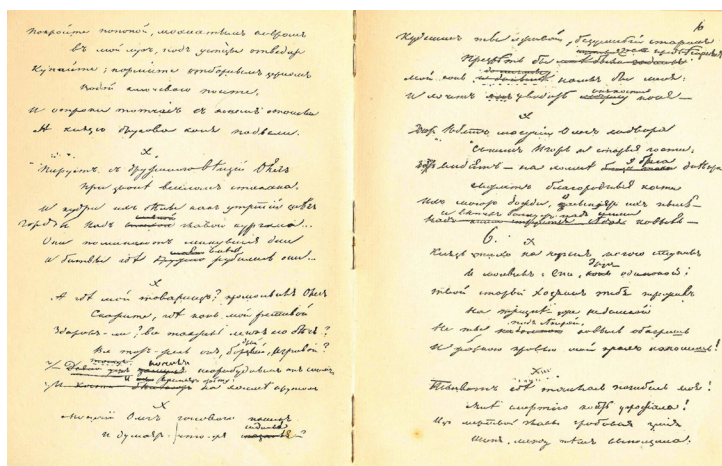 Покройте попоной, мохнатымъ ковромъ
въ мой лугъ, подъ уздцы отведите
Купайте; кормите отборнымъ зерномъ
Водой ключевою поите.
И отроки тотчасъ съ конемъ отошли
А князю другова коня подвели.
х
Пируетъ съ дружиною вѣщій Олегъ
При звонѣ веселомъ стакана.
И кудри ихъ бѣлы какъ утренній снѣгъ
надъ славной главой кургана...
Они поминаютъ минувшіе дни
И битвы гдѣ вмѣстѣ рубились они...
х
А гдѣ мой товарищъ? промолвилъ Олегъ
Скажите, гдѣ конь мой ретивой
Здоровъ-ли? все также легокъ его бѣгъ?
Все тотъ-же-ль онъ, бурный, игривой?
на холмѣ крутомъ
х
Могучій Олегъ головою поникъ
И думаетъ: что-жъ гаданье?
6
Кудесникъ ты лживый, безумный старикъ
Презрѣть бы
Мой конь и донынѣ носилъ бы меня:
И хочетъ увидѣть онъ кости коня—
х
Вотъ ѣдетъ могучій Олегъ со двора
Съ нимъ Игорь и старые гости.
И видятъ — на холмѣ у брега Днѣпра
лежатъ благородныя кости
Ихъ моютъ дожди, засыпаетъ ихъ пыль—
И вѣтеръ волнуетъ надъ ними
ковыль—
6. х
Князь тихо на черепъ коня наступилъ
И молвилъ: спи, другъ одинокой!
Твой старый хозяинъ тебя пережилъ
На тризнѣ уже недалекой
Не ты подъ сѣкирой ковыль обагришь
И жаркою кровью мой прахъ напоишь!
х
Такъ вотъ гдѣ таилась погибель моя!
Мнѣ смертію кость угрожала!
Изъ мертвой главы гробовая змія
Шипя, между тѣмъ выползала.